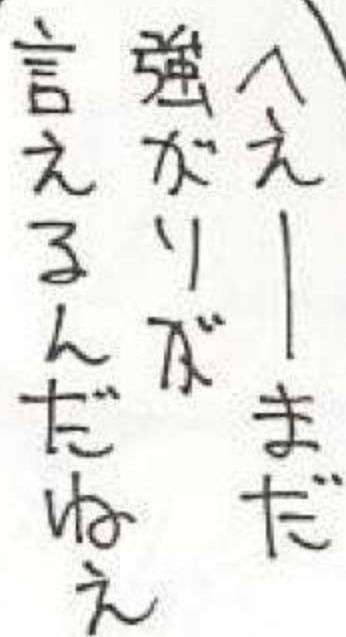 へえーまだ
強がりが
言えるんだねえ